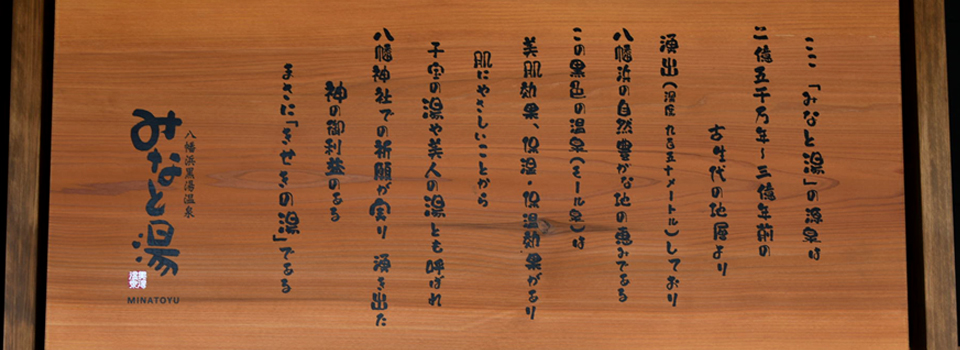 ここ「みなと湯」の源泉は
二億五千万年~三億年前の
古生代の地層より
湧出(深度 九百五十メートル)しており
八幡浜の自然豊かな地の恵みである
この黒色の温泉(モール泉)は
美肌効果、保温・保湿効果があり
肌にやさしいことから
子宝の湯や美人の湯とも呼ばれ
八幡神社での祈願が実り 湧き出た
神の御利益のある
まさに「きせきの湯」である
八幡浜黒湯温泉
みなと湯
MINATOYU